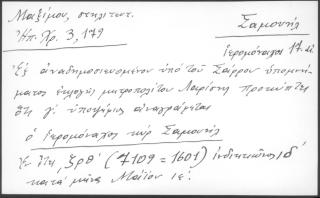 Μαξίμου, στηλιτευτ.
Ἠπ. Χρ. 3, 179
Σαμουὴλ
ἱερομόναχος 17. αἰ
Ἐξ ἀναδημοσιευομένου ὑπὸ τοῦ Σάρρου ὑπομνή-
ματος ἐκλογῆς μητροπολίτου Λαρίσης προκύπτει
ὅτι γ' ὑποψήφιος ἀναγράφεται
ὁ ἱερομόναχος κὺρ Σαμουὴλ
Ἐν ἔτει ͵ζρθ' (7109 = 1601) ἰνδικτιῶνος ιδ'
κατὰ μῆνα Μάϊον ιε'.